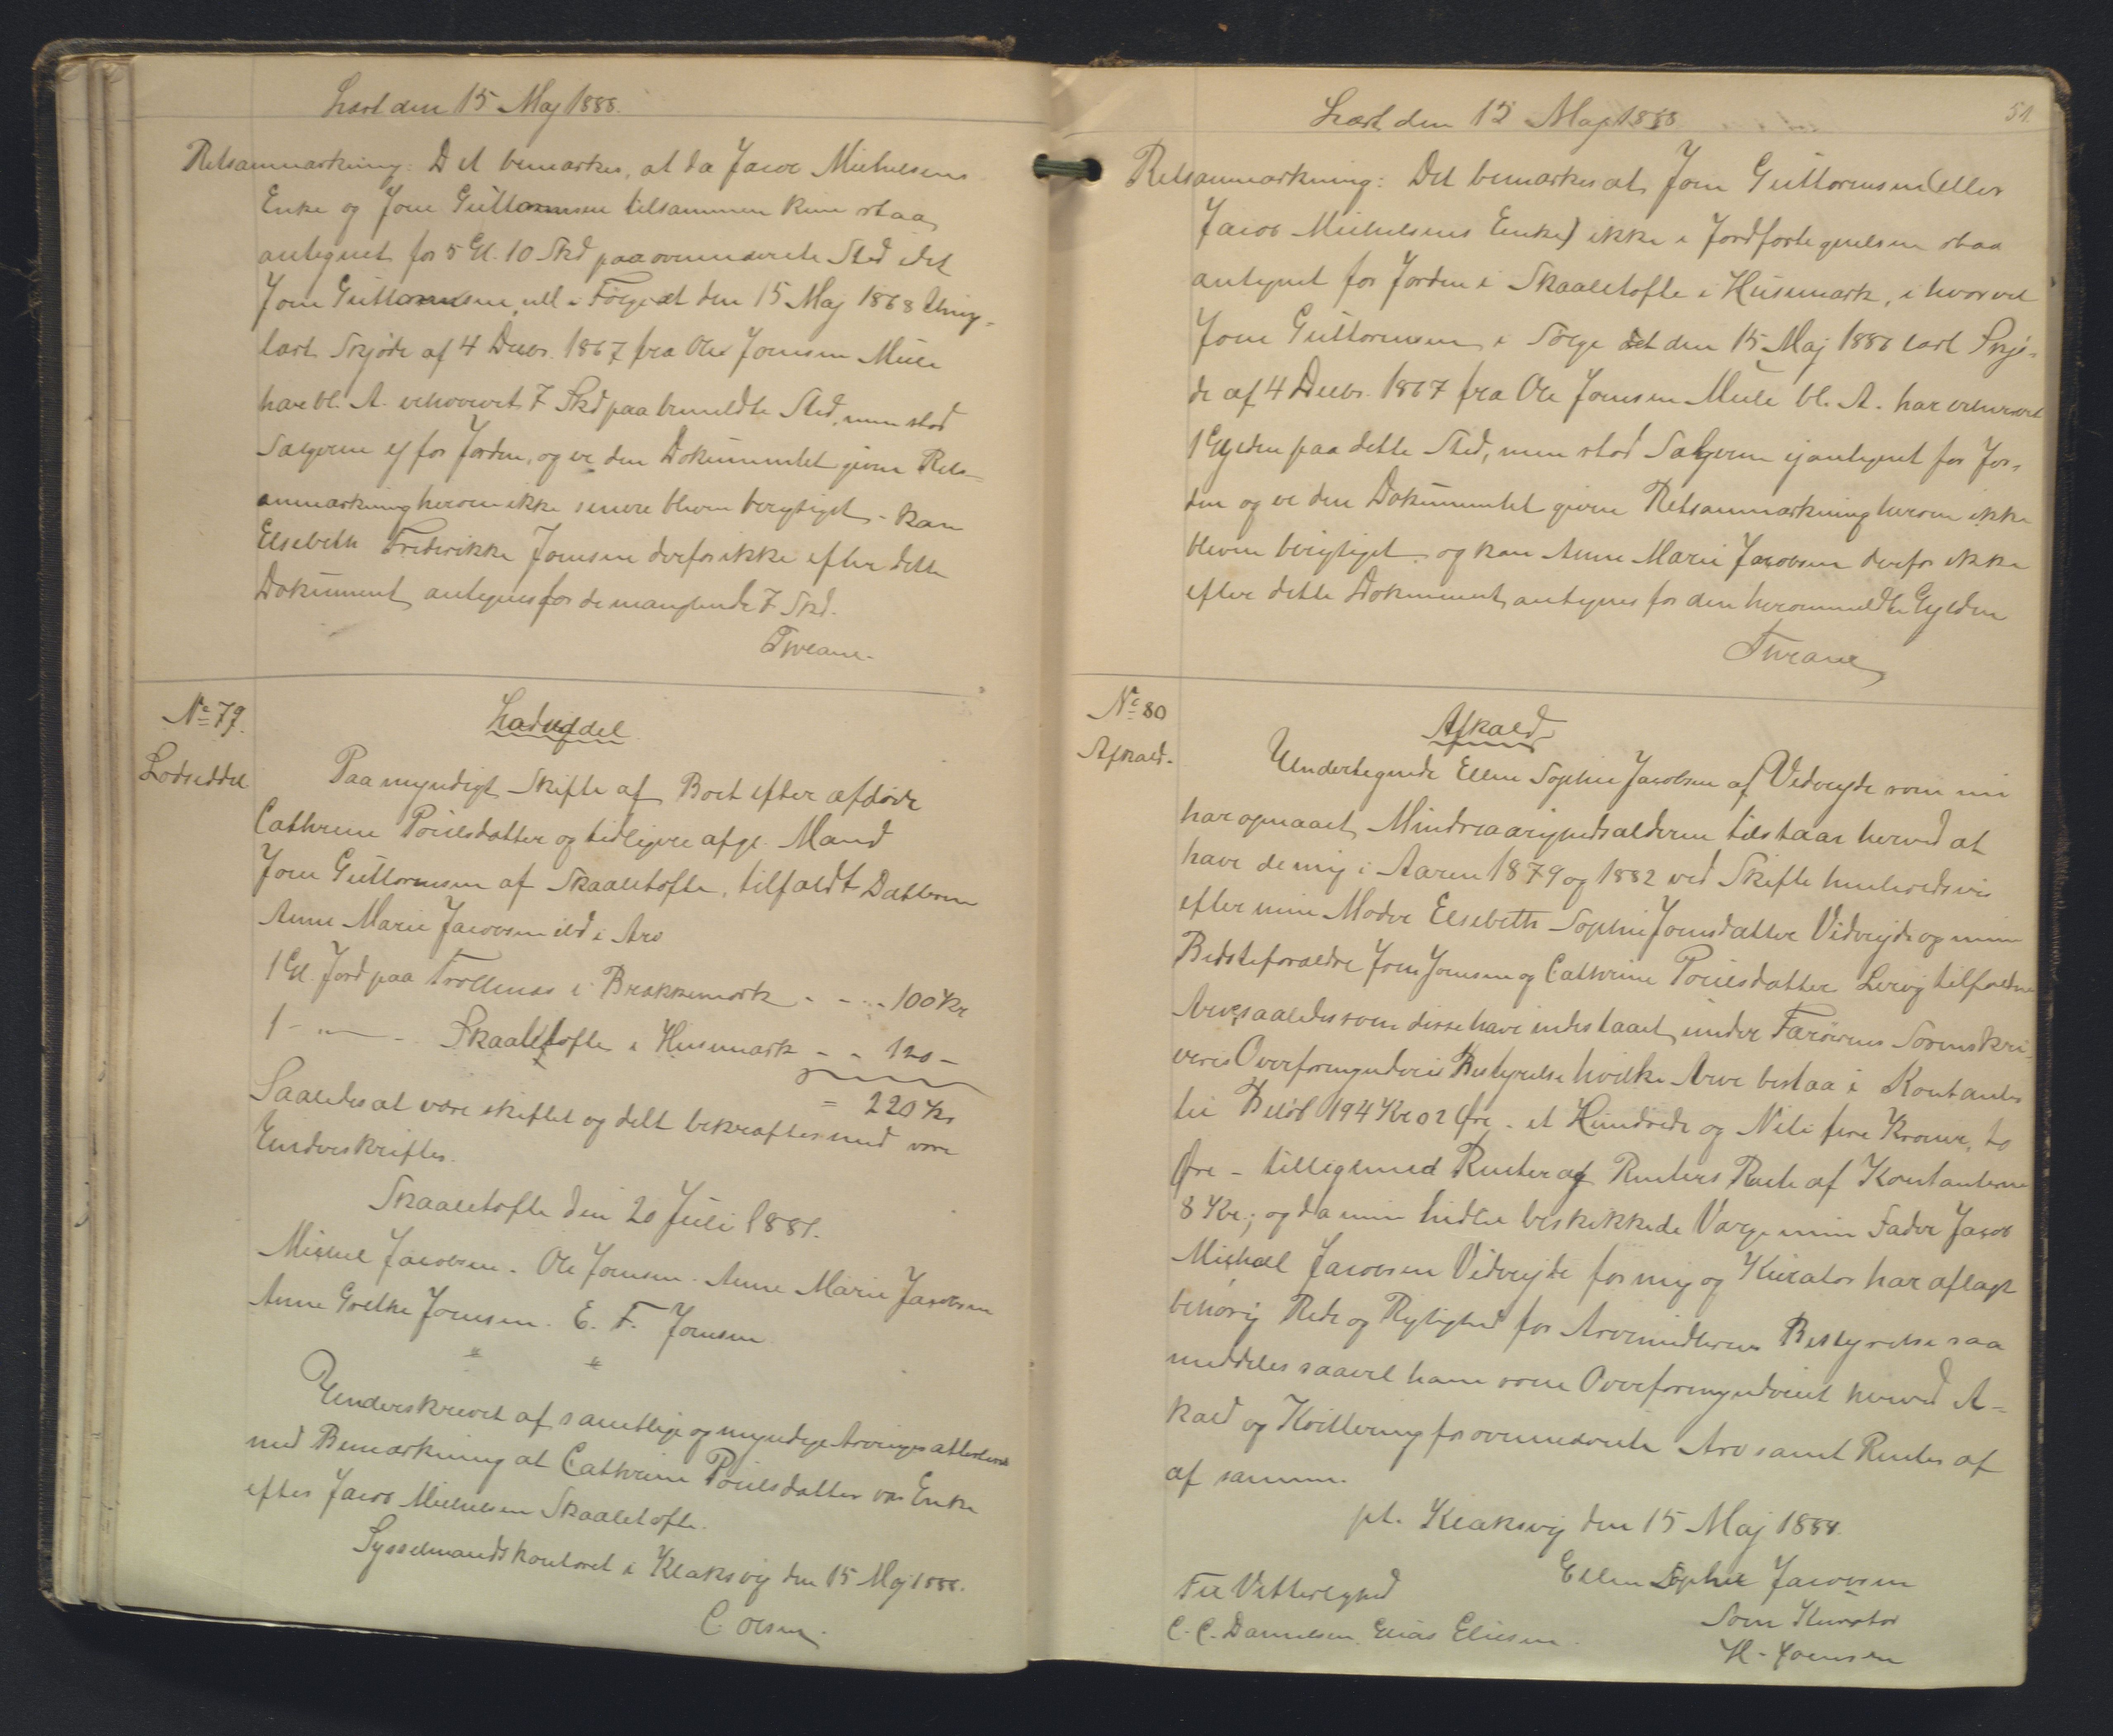 Læst den 15 Maj 1888.
Retsanmærkning: Det bemærkes, at da Jacob Michelsens
Enke og Joen Guttormsen tilsammen kun staa
antegnet for 5 Gl. 10 Skd paa ovennævnte Sted idet
Joen Guttormsen vel i Følge et den 15 Maj 1868 thing-
læst Skjøde af 4 Decbr. 1867 fra Ole Joensen Mule
have bl. A. erhvervet 7 Skd paa bemeldte Sted, men stod
Sælgeren ej for Jorden, og er den Dokumentet given Rets-
anmærkning herom ikke senere bleven berigtiget - kan
Elsebeth Frederikke Joensen derfor ikke efter dette
Dokument antegnes for de manglende 7 Skd.
Tweane.
No 79.
Lodseddel
Lodseddel
Paa myndigt Skifte af Boet efter afdøde
Cathrine Poulsdatter og tidligere afg. Mand
Joen Guttormsen af Skaaletofte, tilfaldt Datteren
Anne Marie Jacobsen ild i Arv
1 Gl. Jord paa Trollenæs i Brekkemark - - - 100 Kr
1 - " - - Skaaletofte i Husemark - - 120 -
= 220 Kr
Saaledes at være skiftet og delt bekræftes med vore
Underskrifter.
Skaaletofte den 20 Juli 1881.
Michel Jacobsen. Ole Joensen. Anne Marie Jacobsen
Anne Grethe Joensen. E. F. Joensen
" "
Underskrevet af samtlige og myndige Arvinger attesteres
med Bemærkning at Cathrine Poulsdatter var Enke
efter Jacob Michelsen Skaaletofte.
Sysselmandskontoret i Klaksvig den 15 Maj 1888.
C. Olsen.
51.
Læst den 15 Maj 1888
Retsanmærkning: Det bemærkes at Joen Guttormsen (eller
Jacob Michelsens Enke) ikke i Jordfortegnelsen staa
antegnet for Jorden i Skaaletofte i Husemark, i hvorvel
Joen Guttormsen i Følge det den 15 Maj 1888 læst Skjø-
de af 4 Decbr. 1867 fra Ole Joensen Mule bl. A. har erhvervet
1 Gylden paa dette Sted, men stod Sælgeren ej antegnet for Jor-
den og er den Dokumentet given Retsanmærkning herom ikke
bleven berigtiget og kan Anne Marie Jacobsen derfor ikke
efter dette Dokument antegnes for den herommeldte Gylden
Tweane
No 80
Afkald.
Afkald
Undertegnede Ellen Sophie Jacobsen af Vidvejde som nu
har opnaaet Mindreaarighedsalderen tilstaar herved at
have de mig i Aaren 1879 og 1882 ved Skifte henholdsvis
efter min Moder Elsebeth Sophie Joensdatter Vidvejde og mine
Bedsteforældre Joen Joensen og Cathrine Poulsdatter Lervig tilfaldne
Arve, saaledes som disse have indestaaet under Færøernes Sorenskri-
veris Overformynderis Bestyrelse hvilke Arve bestaa i Kontanter
til Beløb 194 Kr 02 Øre - et Hundrede og Niti fire Kroner, to
Øre - tilligemed Renter og Renters Rente af Kontanterne
8 Kr; og da min hidtil beskikkede Værge min Fader Jacob
Michael Jacobsen Vidvejde for mig og Kurator har aflagt
behørig Rede og Rigtighed for Arvemidlernes Bestyrelse saa
meddeles saavel ham som Overformynderiet herved A-
kald og Kvittering for ovennævnte Arv samt Renter af
af samme.
pt. Klaksvig den 15 Maj 1888.
Ellen Sophie Jacobsen
Til Vitterlighed
Som Kurator
C. C. Danielsen. Elias Eliesen.
H. Joensen